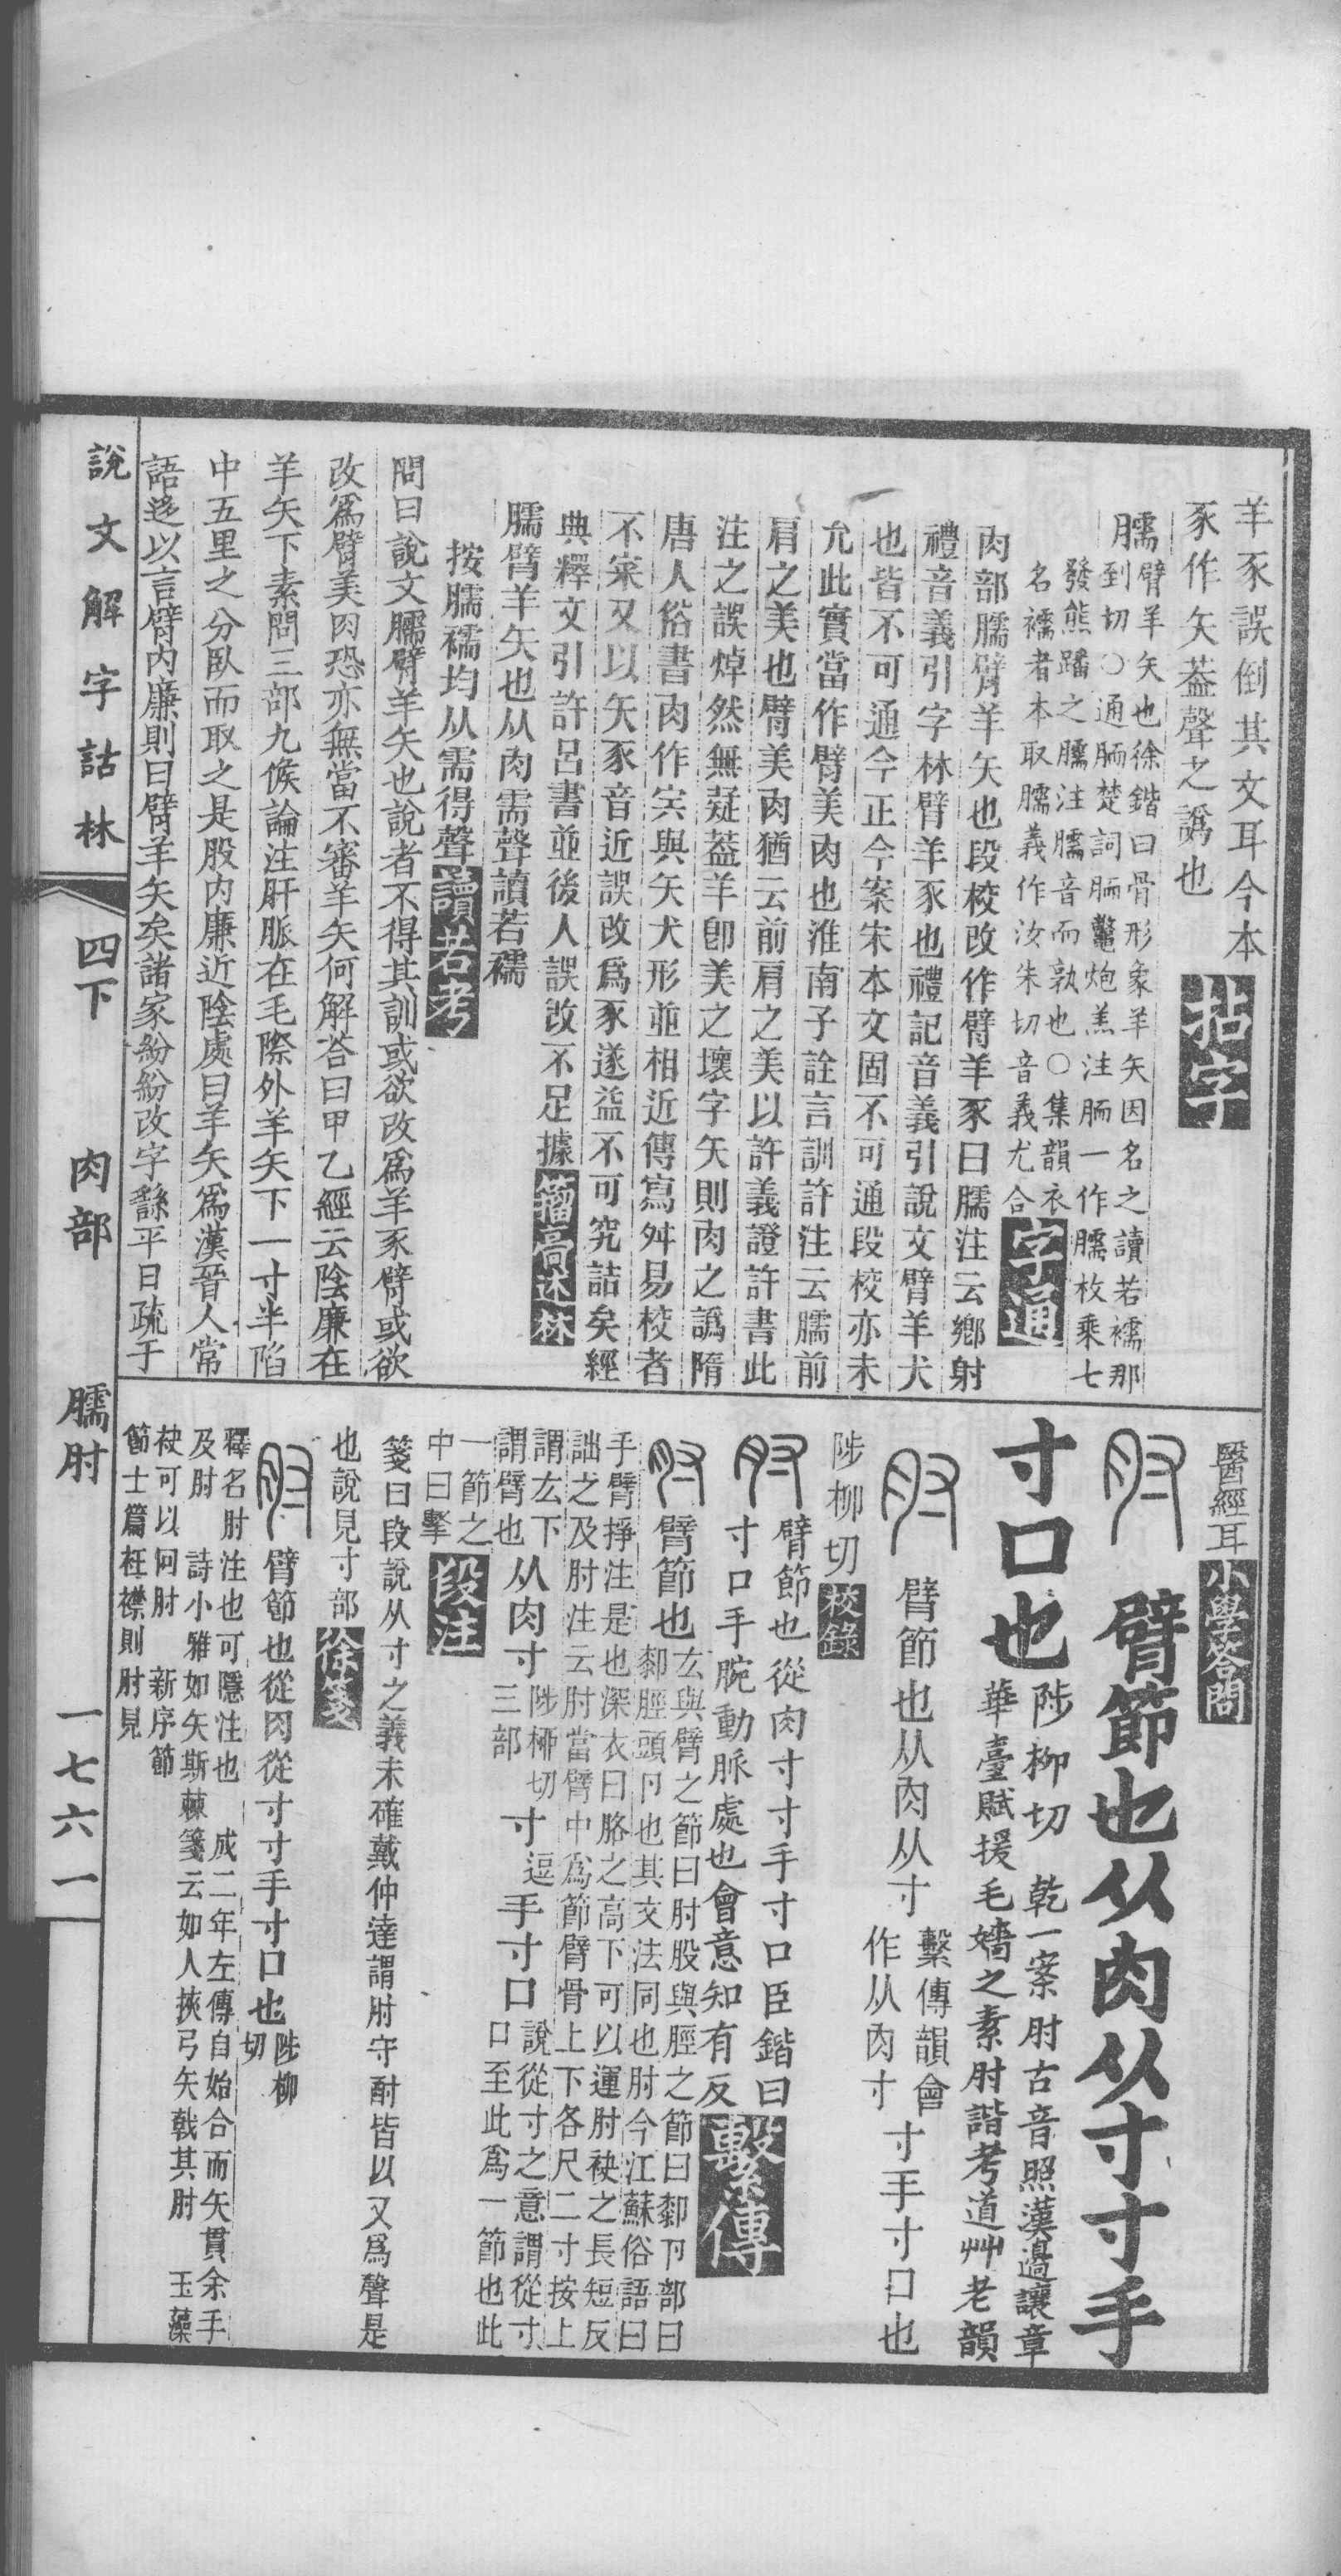 羊豕誤倒其文耳今本
豕作矢葢聲之譌也
拈字
臑臂羊矢也徐鍇曰骨形象羊矢因名之讀若襦那
到切○通胹楚詞胹鼈炮羔注胹一作臑枚乘七
發熊蹯之臑注臑音而孰也○集韻衣
名襦者本取臑義作汝朱切音義尤合
字通
肉部臑臂羊矢也段校改作臂羊豕曰臑注云鄉射
禮音義引字林臂羊豕也禮記音義引說文臂羊犬
也皆不可通今正今案宋本文固不可通段校亦未
允此實當作臂美肉也淮南子詮言訓許注云臑前
肩之美也臂美肉猶云前肩之美以許義證許書此
注之誤焯然無疑葢羊卽美之壞字矢則肉之譌隋
唐人俗書肉作宍與矢犬形並相近傳寫舛易校者
不寀又以矢豕音近誤改爲豕遂益不可究詰矣經
典釋文引許呂書並後人誤改不足據
籀𩫏述林
臑臂羊矢也从肉需聲讀若襦
按臑襦均从需得聲
讀若考
問曰說文臑臂羊矢也說者不得其訓或欲改爲羊豕臂或欲
改爲臂美肉恐亦無當不審羊矢何解荅曰甲乙經云陰廉在
羊矢下素問三部九候論注肝脈在毛際外羊矢下一寸半陷
中五里之分臥而取之是股內廉近陰處曰羊矢爲漢晉人常
語迻以言臂內廉則曰臂羊矢矣諸家紛紛改字繇平日疏于
醫經耳
小學荅問
肘 臂節也从肉从寸寸手
寸口也
陟柳切 乾一案肘古音照漢邊讓章
華臺賦援毛嬙之素肘諧考道艸老韻
肘 臂節也从肉从寸
繫傳韻會
作从肉寸
寸手寸口也
陟柳切
校錄
肘 臂節也從肉寸寸手寸口臣鍇曰
寸口手腕動脈處也會意知有反
繫傳
肘 臂節也
玄與臂之節曰肘股與脛之節曰厀卪部曰
厀脛頭卪也其文法同也肘今江蘇俗語曰
手臂掙注是也深衣曰胳之高下可以運肘袂之長短反
詘之及肘注云肘當臂中爲節臂骨上下各尺二寸按上
謂厷下
謂臂也
从肉寸
陟柳切
三部
寸
逗
手寸口
說從寸之意謂從寸
口至此爲一節也此
一節之
中曰掔
段注
箋曰段說从寸之義未確戴仲達謂肘守酎皆以又爲聲是
也說見寸部
徐箋
肘 臂節也從肉從寸寸手寸口也
陟柳
切
釋名肘注也可隱注也 成二年左傳自始合而矢貫余手
及肘 詩小雅如矢斯棘箋云如人挾弓矢戟其肘 玉藻
袂可以回肘 新序節
節士篇衽襟則肘見
說文解字詁林
四下
肉部
臑肘
一七六一